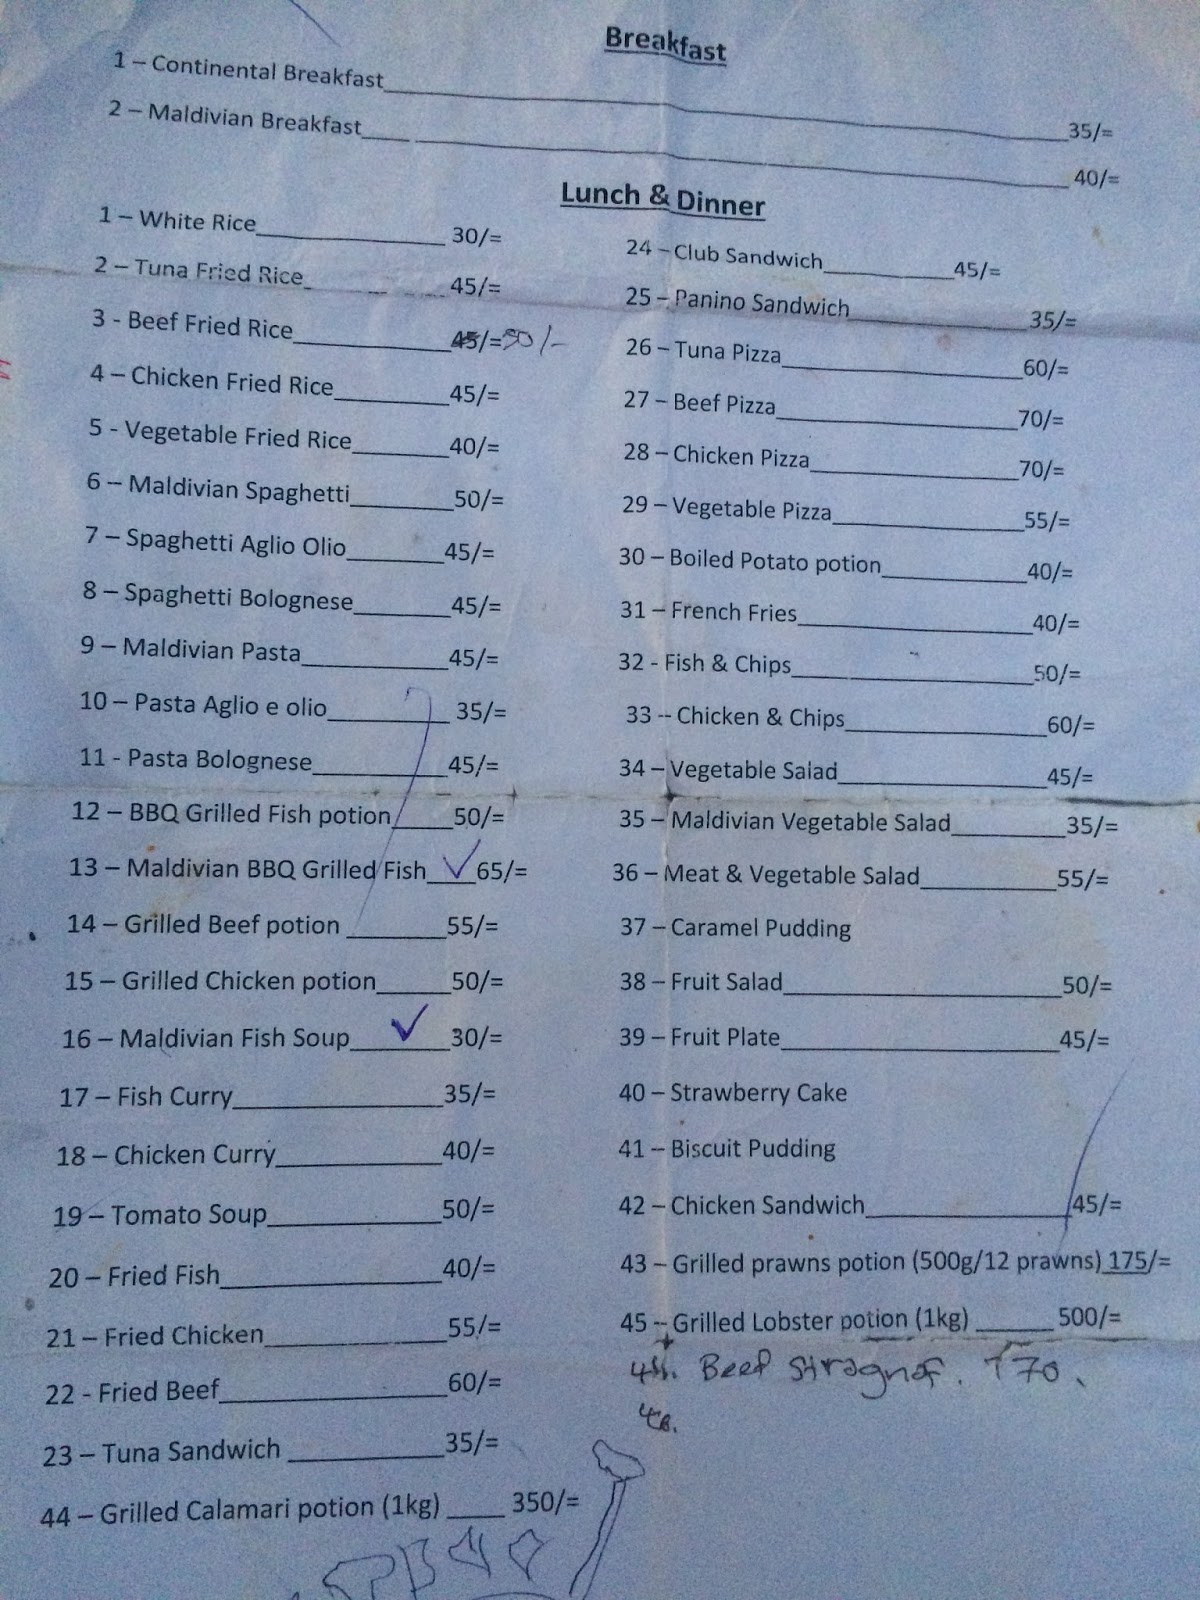 Breakfast
1 – Continental Breakfast 35/=
2 – Maldivian Breakfast 40/=
Lunch & Dinner
1 – White Rice 30/=
2 – Tuna Fried Rice 45/=
3 - Beef Fried Rice 45/= 50/-
4 – Chicken Fried Rice 45/=
5 - Vegetable Fried Rice 40/=
6 – Maldivian Spaghetti 50/=
7 – Spaghetti Aglio Olio 45/=
8 – Spaghetti Bolognese 45/=
9 – Maldivian Pasta 45/=
10 – Pasta Aglio e olio 35/=
11 - Pasta Bolognese 45/=
12 – BBQ Grilled Fish potion 50/=
13 – Maldivian BBQ Grilled Fish 65/=
14 – Grilled Beef potion 55/=
15 – Grilled Chicken potion 50/=
16 – Maldivian Fish Soup 30/=
17 – Fish Curry 35/=
18 – Chicken Curry 40/=
19 – Tomato Soup 50/=
20 – Fried Fish 40/=
21 – Fried Chicken 55/=
22 - Fried Beef 60/=
23 – Tuna Sandwich 35/=
44 – Grilled Calamari potion (1kg) 350/=
24 – Club Sandwich 45/=
25 – Panino Sandwich 35/=
26 – Tuna Pizza 60/=
27 – Beef Pizza 70/=
28 – Chicken Pizza 70/=
29 – Vegetable Pizza 55/=
30 – Boiled Potato potion 40/=
31 – French Fries 40/=
32 - Fish & Chips 50/=
33 -- Chicken & Chips 60/=
34 – Vegetable Salad 45/=
35 – Maldivian Vegetable Salad 35/=
36 – Meat & Vegetable Salad 55/=
37 – Caramel Pudding
38 – Fruit Salad 50/=
39 – Fruit Plate 45/=
40 – Strawberry Cake
41 – Biscuit Pudding
42 – Chicken Sandwich 45/=
43 – Grilled prawns potion (500g/12 prawns) 175/=
45 -- Grilled Lobster potion (1kg) 500/=
Beef Stragnof. 70